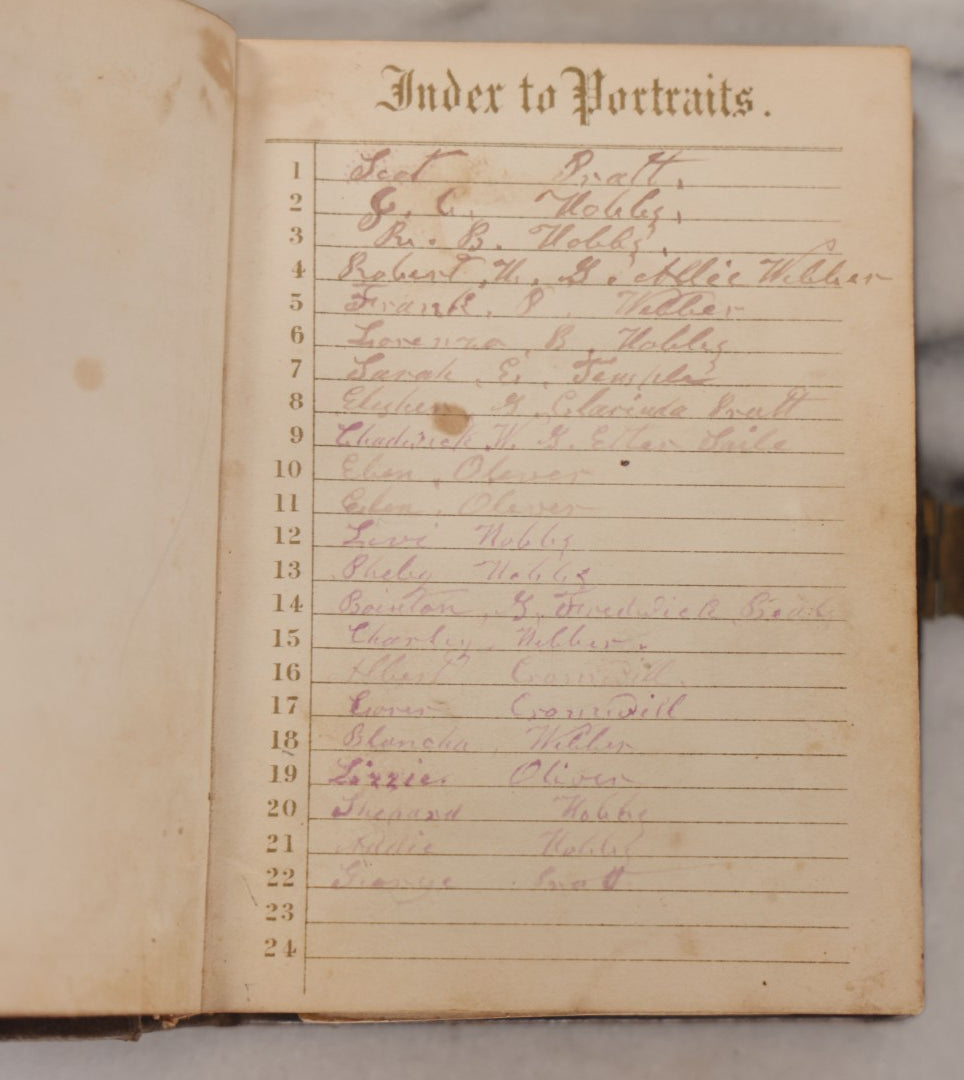 Index to Portraits.
1 Scot Pratt.
2 G. C. Hobbs.
3 R. B. Hobbs.
4 Robert H. & Allie Webber
5 Frank. P. Webber
6 Lorenzo B. Hobbs
7 Sarah E. Temple
8 & Clarinda Pratt
9 Chadwick W. & Etter
10 Eben. Oliver
11 Eben. Oliver
12 Levi Hobbs
13 Pheby Hobbs
14 Bointon & Fredrick
15 Charley Webber.
16 Albert Cromwill.
17 Cromwill
18 Blancha Webber
19 Lizzie. Oliver
20 Shepard Hobbs
21 Addie Hobbs
22 George Pratt
23
24